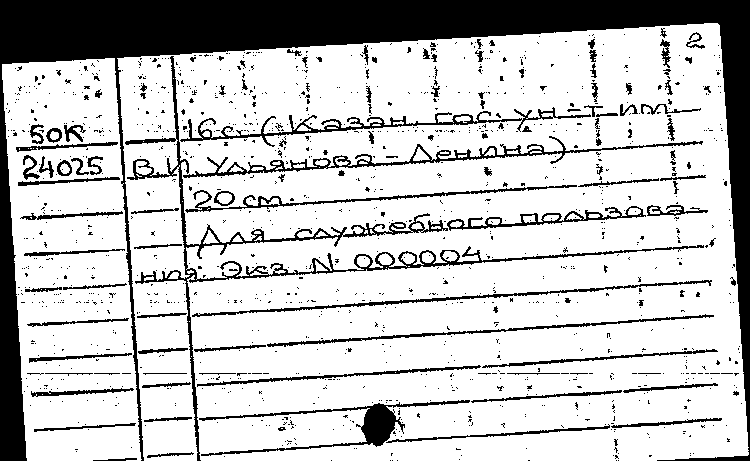 2
50К 16 с. (Казан. гос. ун-т им.
24025 В.И. Ульянова-Ленина).
20 см.
Для служебного пользова-
ния. Экз. № 000004.